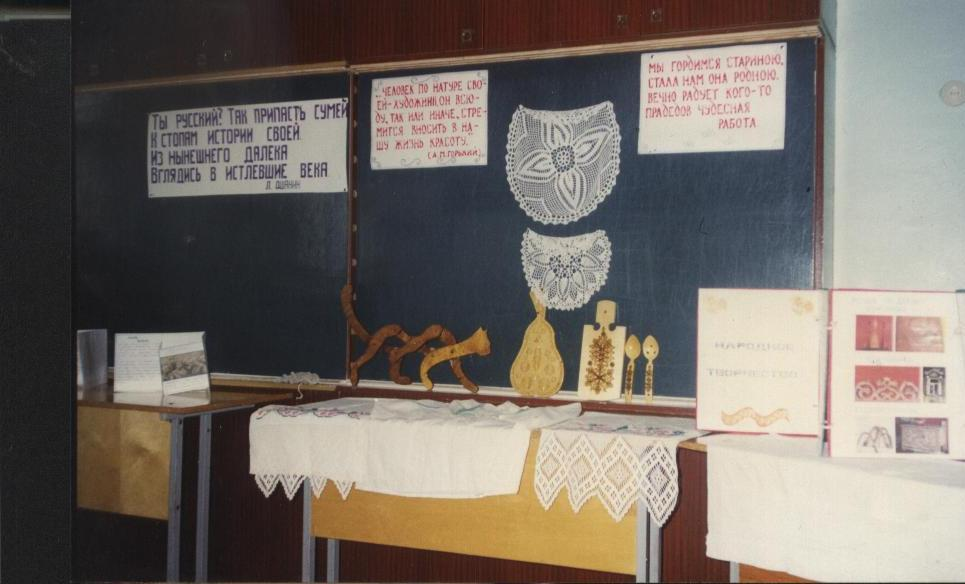 Ты русский? Так припасть сумей
К стопам истории своей
Из нынешнего далека
Вглядись в истлевшие века
Л. Ошанин
„Человек по натуре сво-
ей-художник, он всю-
ду, так или иначе, стре-
мится вносить в на-
шу жизнь красоту."
(А.М.Горький)
Мы гордимся стариною,
Стала нам она родною.
Вечно радует кого-то
Прадедов чудесная
работа
НАРОДНОЕ
ТВОРЧЕСТВО